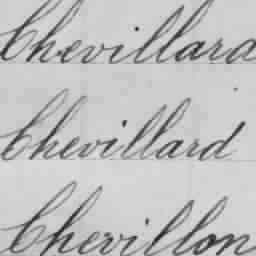 Chevillard
Chevillard
Chevillon